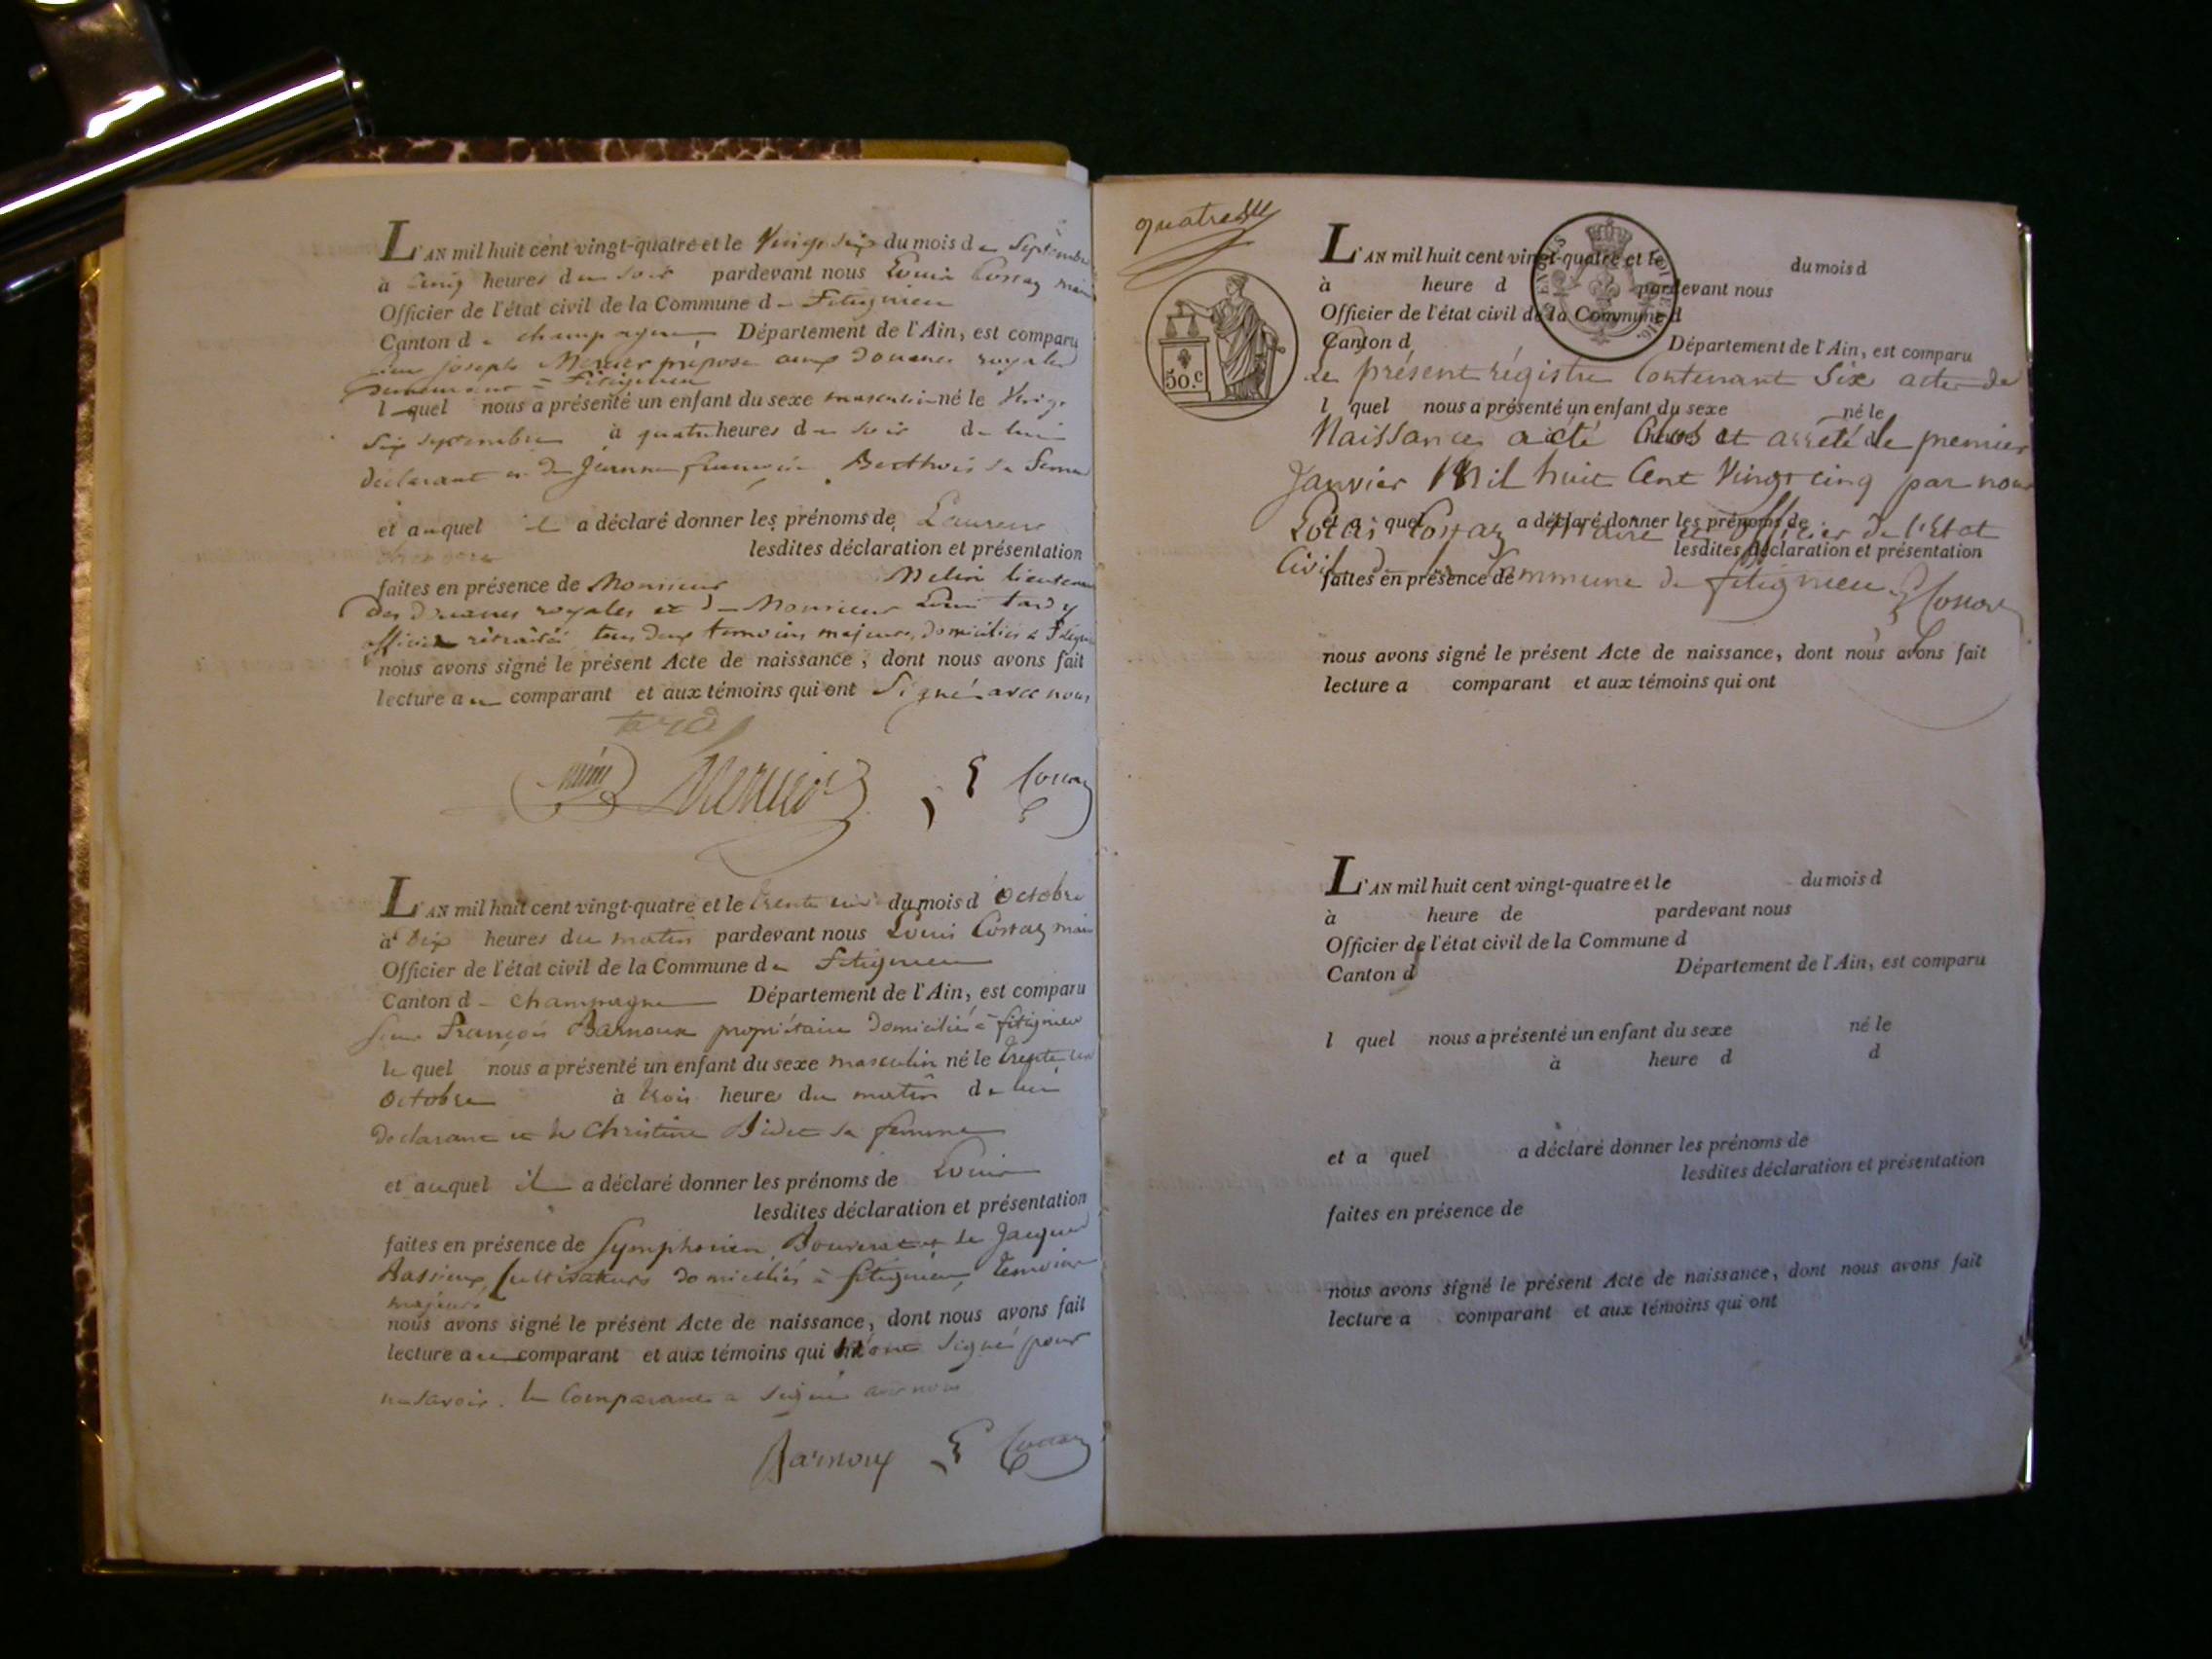 L'AN mil huit cent vingt-quatre et le Vingt six du mois de Septembre
à Cinq heures du soir pardevant nous Louis Costaz maire
Officier de l'état civil de la Commune de Fitignieu
Canton de champagne Département de l'Ain, est comparu
joseph Mercier préposé aux douanes royales
demeurant à Fitignieu
lequel nous a présenté un enfant du sexe masculin né le Vingt
Six septembre à quatre heures du soir de lui
déclarant et de Jeanne françoise Berthois sa femme
et auquel il a déclaré donner les prénoms de Laurent
lesdites déclaration et présentation
faites en présence de Monsieur lieutenant
des Douanes royales et de Monsieur Louis tardy
officier retraité tous deux temoins majeurs, domiciliés à
nous avons signé le présent Acte de naissance, dont nous avons fait
lecture au comparant et aux témoins qui ont Signé avec nous
tardy
Mercier L Costaz
L'AN mil huit cent vingt-quatre et le trente un du mois d Octobre
à Dix heures du matin pardevant nous Louis Costaz maire
Officier de l'état civil de la Commune de Fitignieu
Canton de Champagne Département de l'Ain, est comparu
sieur François Barnoux propriétaire domicilié à fitignieu
lequel nous a présenté un enfant du sexe masculin né le trente un
Octobre à trois heures du matin de lui
déclarant et de Christine Bidet sa femme
et auquel il a déclaré donner les prénoms de Louis
lesdites déclaration et présentation
faites en présence de Symphorien et de Jacques
Cultivateurs domiciliés à fitignieu temoins
majeurs
nous avons signé le présent Acte de naissance, dont nous avons fait
lecture au comparant et aux témoins qui n'ont Signé pour
ne savoir. le Comparant a signé avec nous
Barnoux L Costaz
quatre
50.c
L'AN mil huit cent vingt-quatre et le du mois d
à heure d pardevant nous
Officier de l'état civil de la Commune d
Canton d Département de l'Ain, est comparu
Le présent régistre Contenant Six actes de
l quel nous a présenté un enfant du sexe né le
Naissances a été Clos et arrêté le premier
Janvier Mil huit Cent Vingt cinq par nous
et a quel a déclaré donner les prénoms de
Louis Costaz Maire et Officier de l'Etat
lesdites déclaration et présentation
Civil de la Commune de fitignieu L Costaz
faites en présence de
nous avons signé le présent Acte de naissance, dont nous avons fait
lecture a comparant et aux témoins qui ont
L'AN mil huit cent vingt-quatre et le du mois d
à heure de pardevant nous
Officier de l'état civil de la Commune d
Canton d Département de l'Ain, est comparu
l quel nous a présenté un enfant du sexe né le
à heure d d
et a quel a déclaré donner les prénoms de
lesdites déclaration et présentation
faites en présence de
nous avons signé le présent Acte de naissance, dont nous avons fait
lecture a comparant et aux témoins qui ont